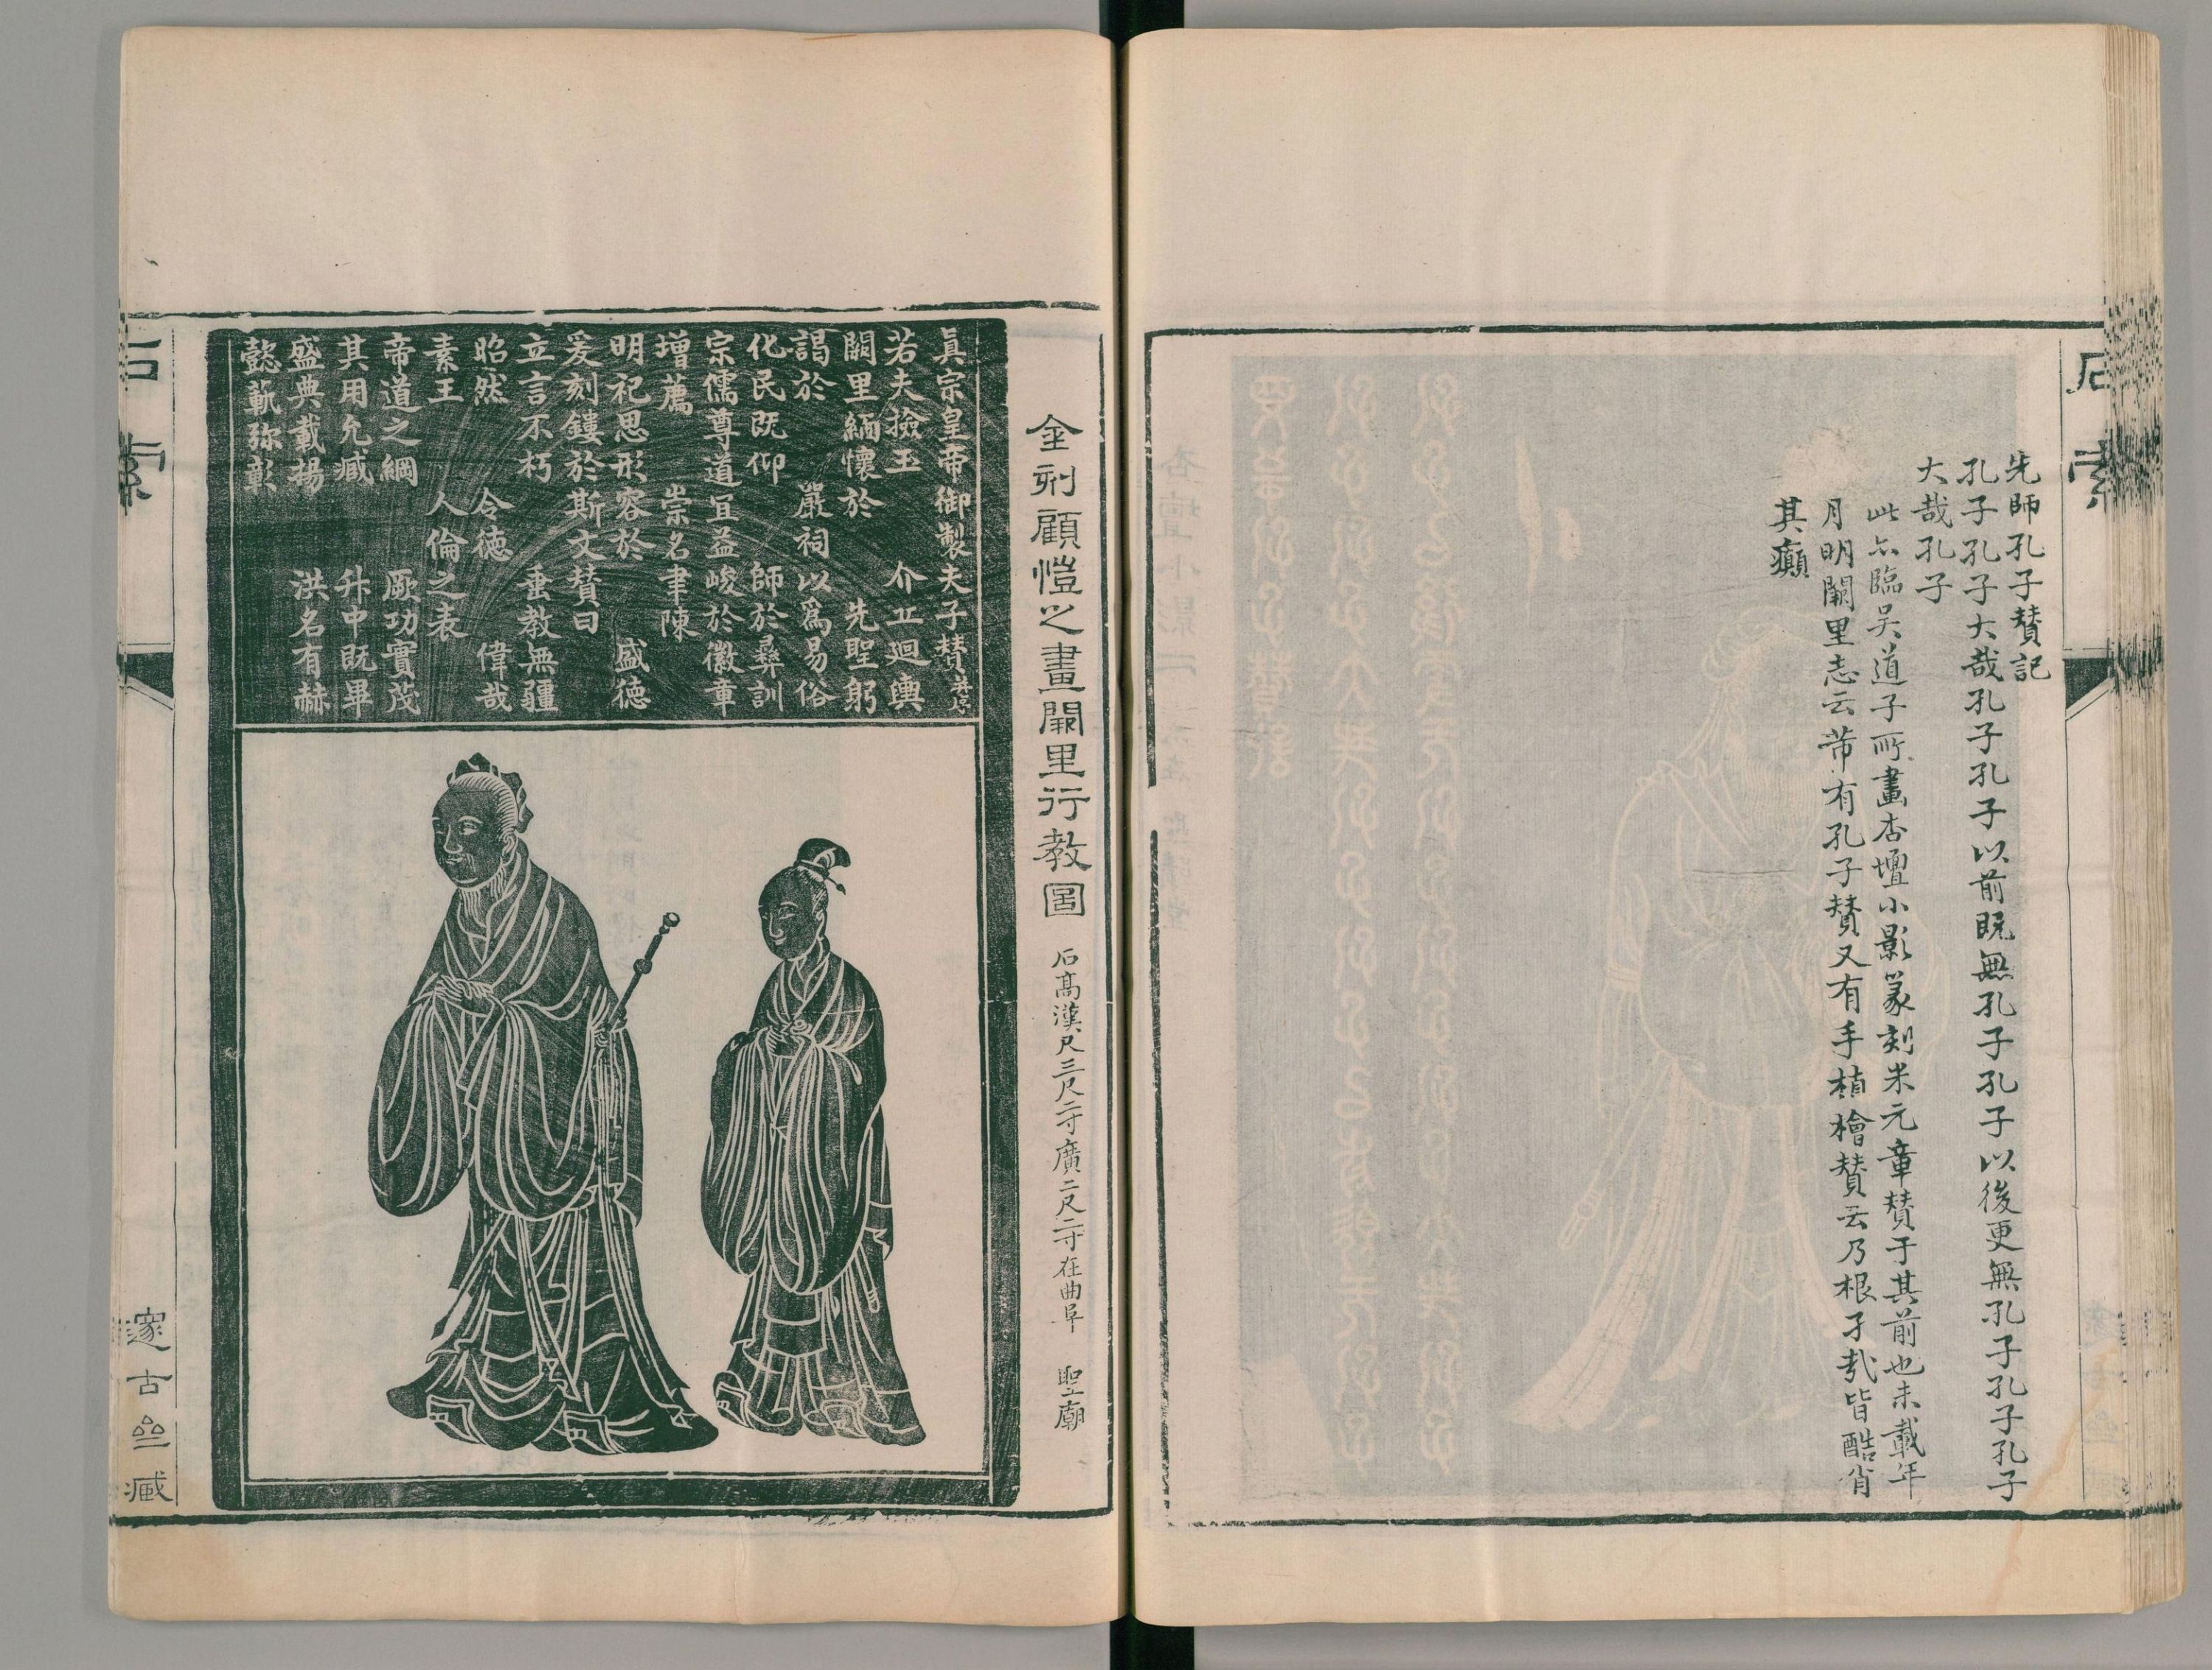 石索
先師孔子賛記
孔子孔子大哉孔子孔子以前既無孔子孔子以後更無孔子孔子孔子
大哉孔子
此亦臨吴道子所畫杏壇小影篆刻米元章賛于其前也未載年
月明闕里志云芾有孔子賛又有手植檜賛云乃根孑㦲皆酷肖
其癲
金刻顧愷之畫闕里行教圖
石髙漢尺三尺二寸廣二尺二寸在曲阜 聖廟
真宗皇帝御製夫子賛并序
若夫撿玉 介丘迴輿
闕里緬懷於 先聖躬
謁於 嚴祠以為易俗
化民既仰 師於彞訓
宗儒尊道宜益峻於徽章
增薦 崇名聿陳
明祀思形容於 盛德
爰刻鏤於斯文賛曰
立言不朽 垂教無疆
昭然 令德 偉哉
素王 人倫之表
帝道之綱 厥功實茂
其用允臧 升中既畢
盛典載揚 洪名有赫
懿
弥彰
石索
邃古
臧